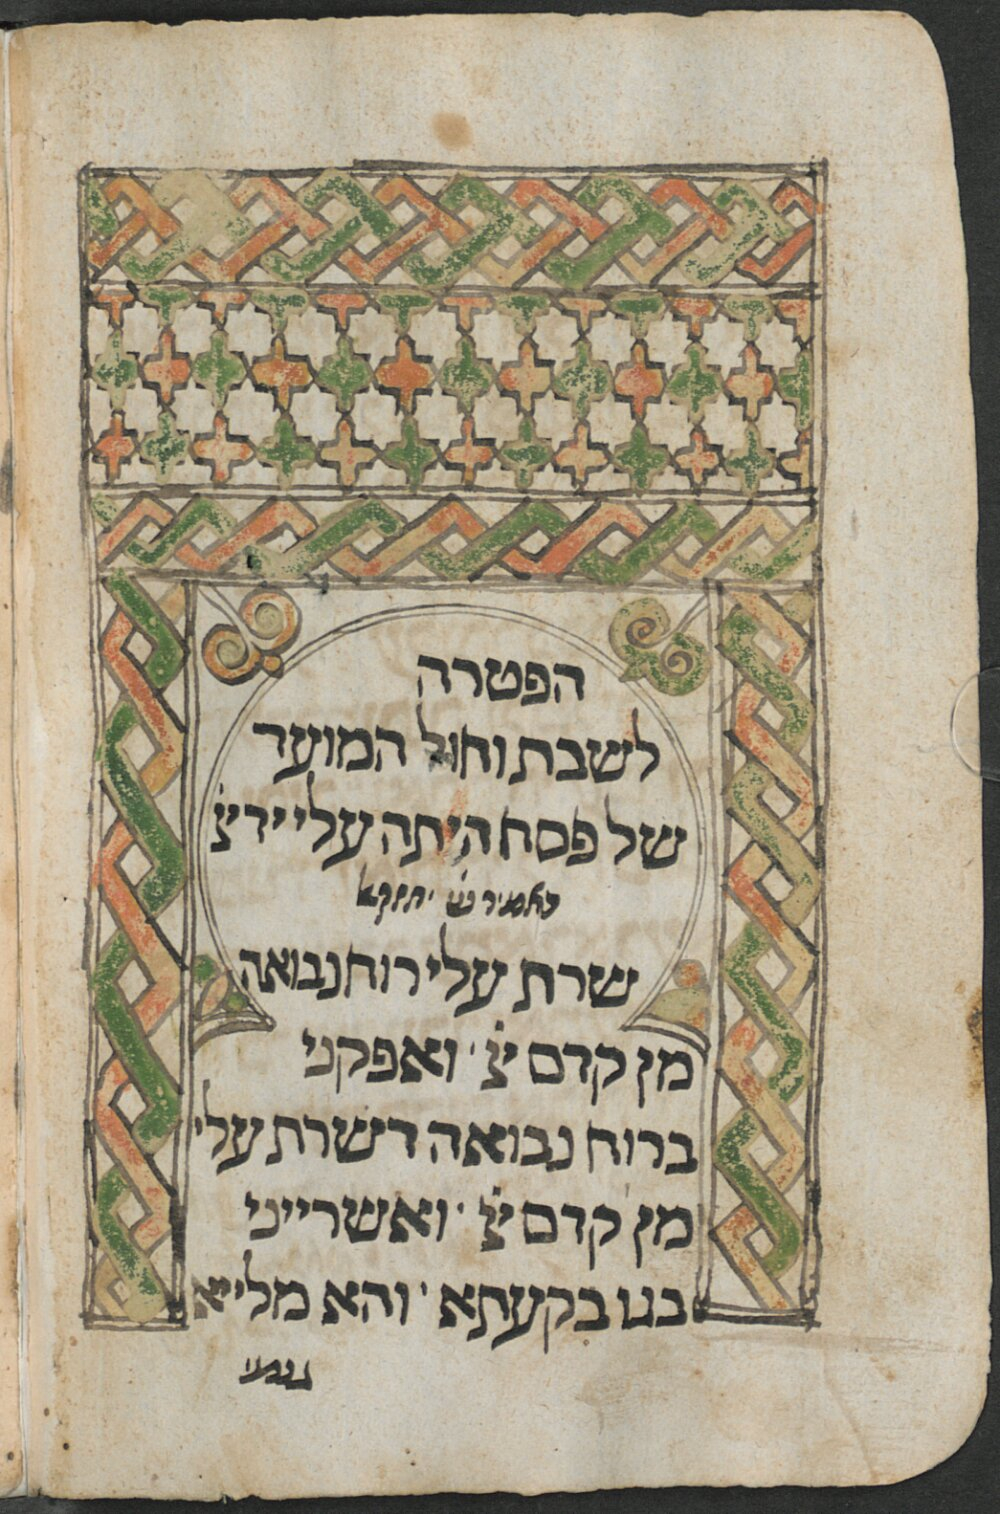 הפטרה
לשבת וחול המועד
של פסח היתה עלי יד יצ
שרת עלי רוח נבואה
מן קדם יצ ׳ ואפקני
ברוח נבואה דשרת עלי
מן קדם יצ ׳ ואשרייני
בגו בקעתא ׳ והא מליא